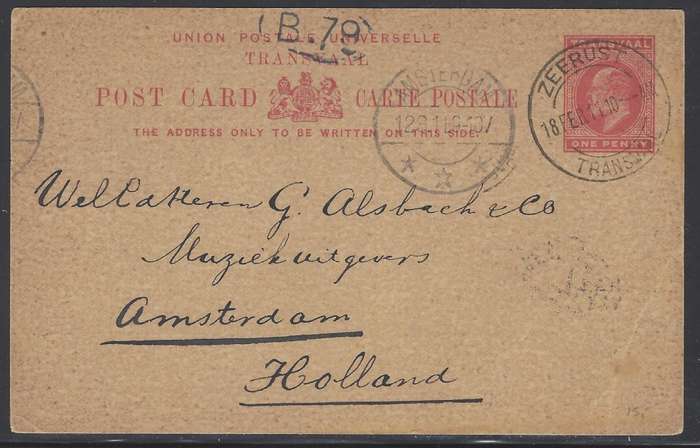 (B.79)
UNION POSTALE UNIVERSELLE
TRANSVAAL
POST CARD CARTE POSTALE
THE ADDRESS ONLY TO BE WRITTEN ON THIS SIDE.
TRANSVAAL
ONE PENNY
ZEERUST
18 FEB 11
TRANSVAAL
AMSTERDAM
Weled Heeren G. Alsbach & Co
Muziekuitgevers
Amsterdam
Holland